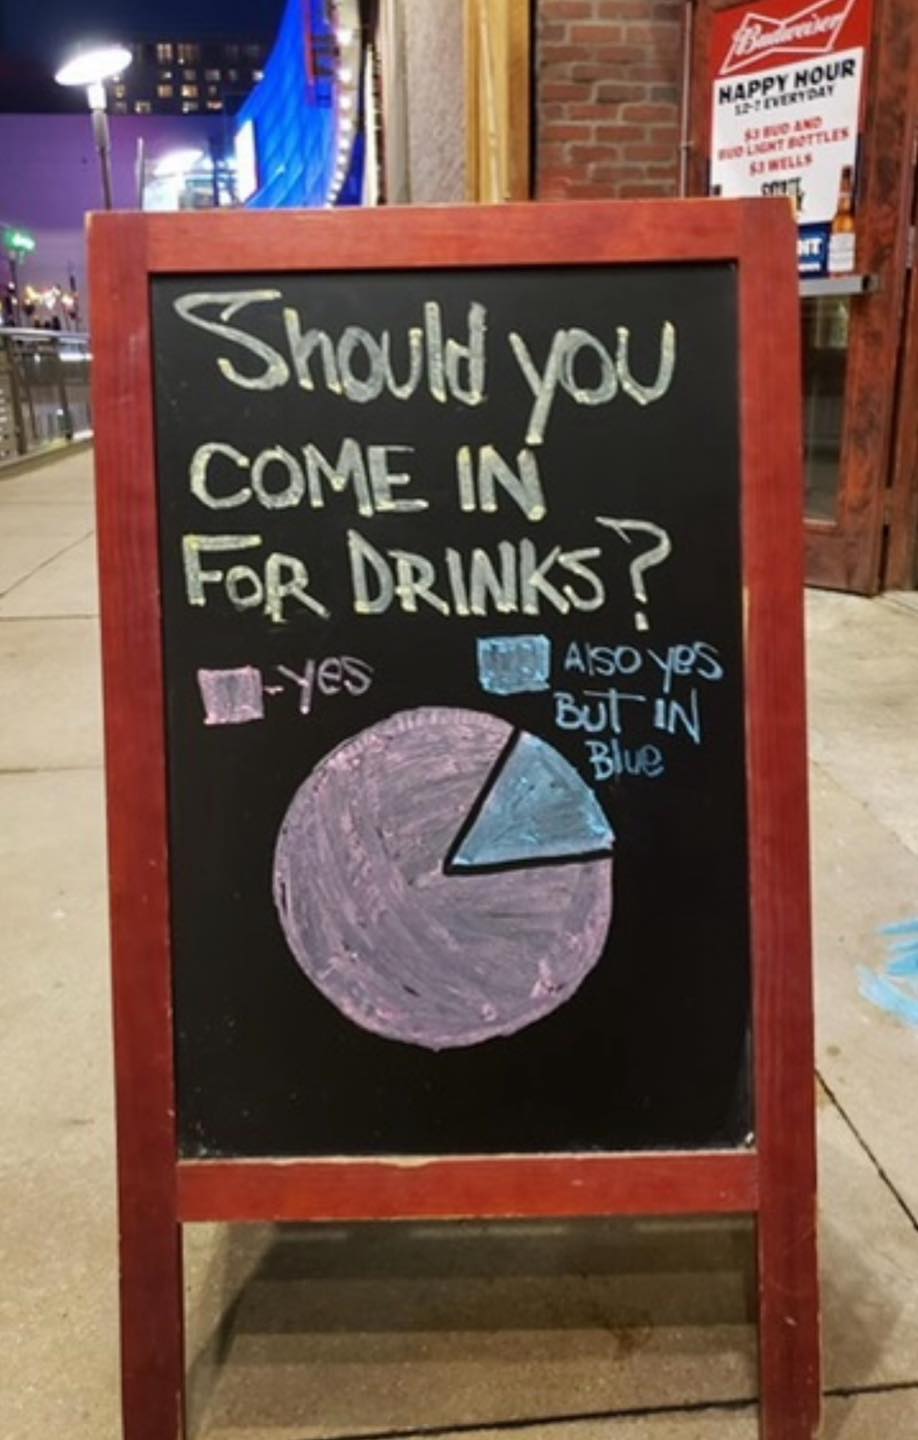 Budweiser
HAPPY HOUR
12-7 EVERYDAY
$3 BUD AND
BUD LIGHT BOTTLES
$3 WELLS
Should you
COME IN
FOR DRINKS?
-yes
Also yes
BUT IN
Blue